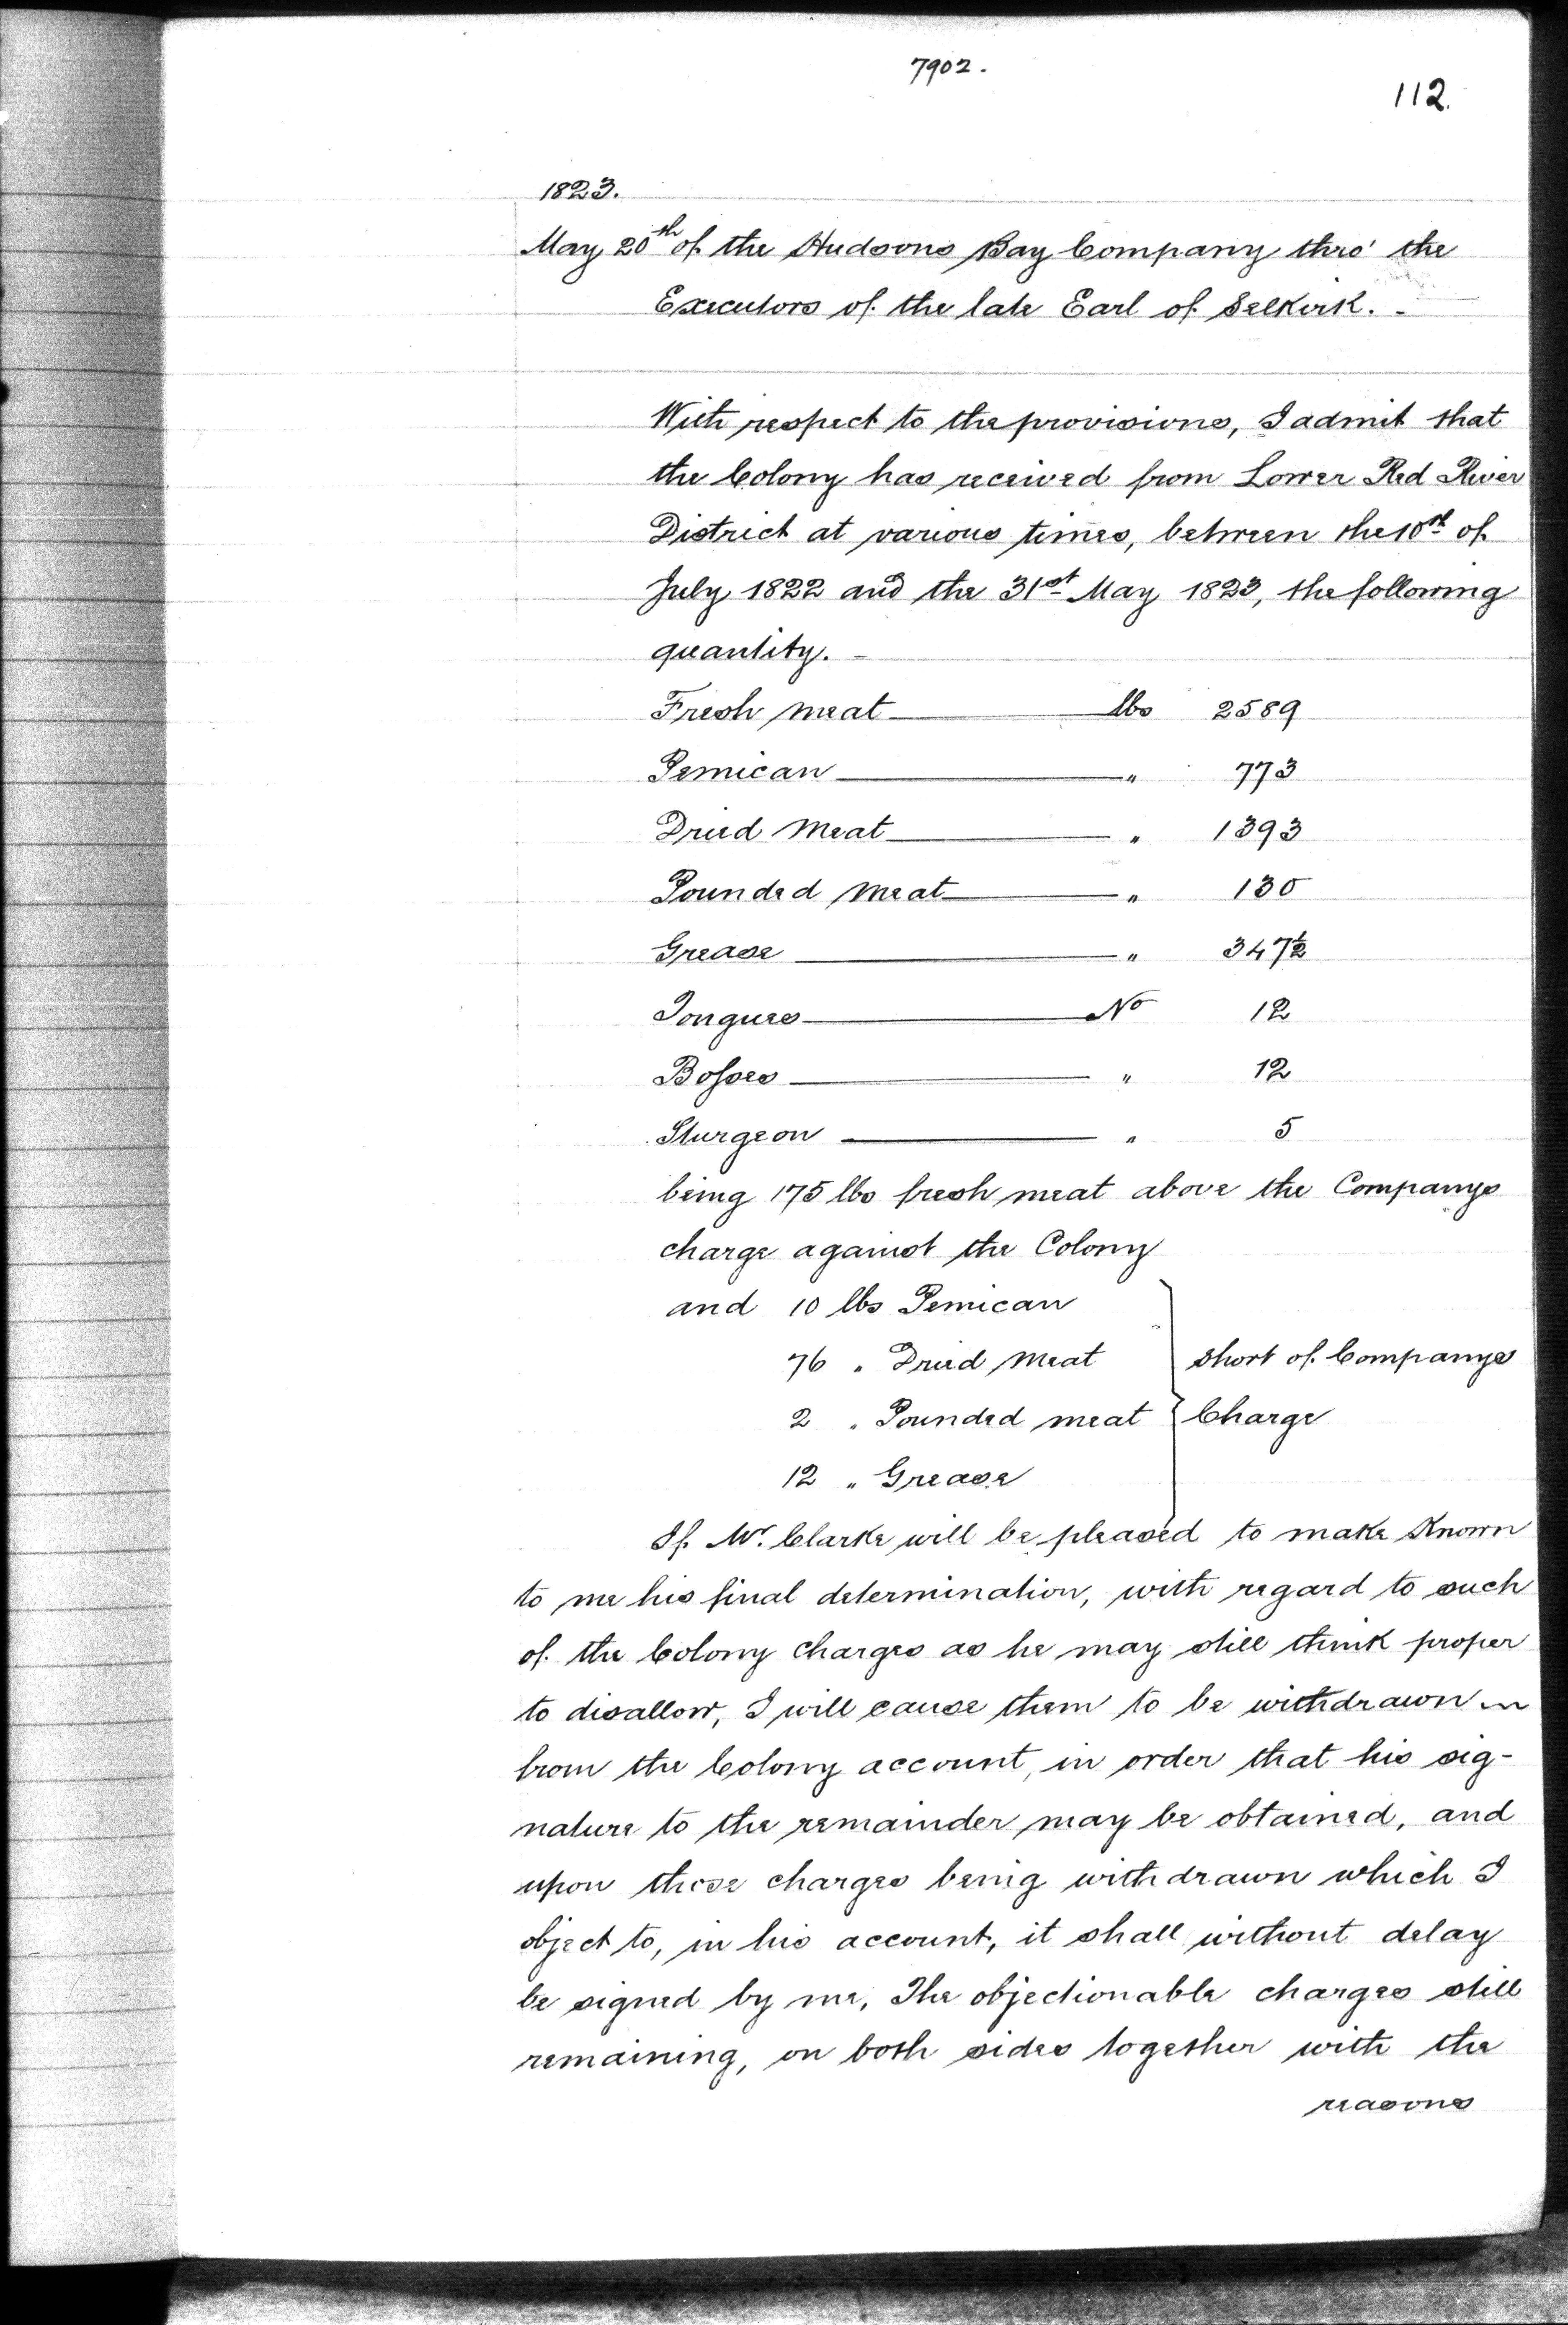 7902.
112.
1823.
May 20th of the Hudsons Bay Company thro' the
Executors of the late Earl of Selkirk. -
With respect to the provisions, I admit that
the Colony has received from Lower Red River
District at various times, between the 10th of
July 1822 and the 31st May 1823, the following
quantity. -
Fresh meat lbs 2589
Pemican " 773
Dried Meat " 1393
Pounded Meat " 130
Grease " 347½
Tongues No 12
Bosses " 12
Sturgeon " 5
being 175 lbs fresh meat above the Companys
charge against the Colony
and 10 lbs Pemican
76 " Dried Meat short of Companys
2 " Pounded meat Charge
12 " Grease
If Mr. Clarke will be pleased to make Known
to me his final determination, with regard to such
of the Colony charges as he may still think proper
to disallow, I will cause them to be withdrawn
from the Colony account, in order that his sig-
nature to the remainder may be obtained, and
upon those charges being withdrawn which I
object to, in his account, it shall without delay
be signed by me, The objectionable charges still
remaining, on both sides together with the
reasons